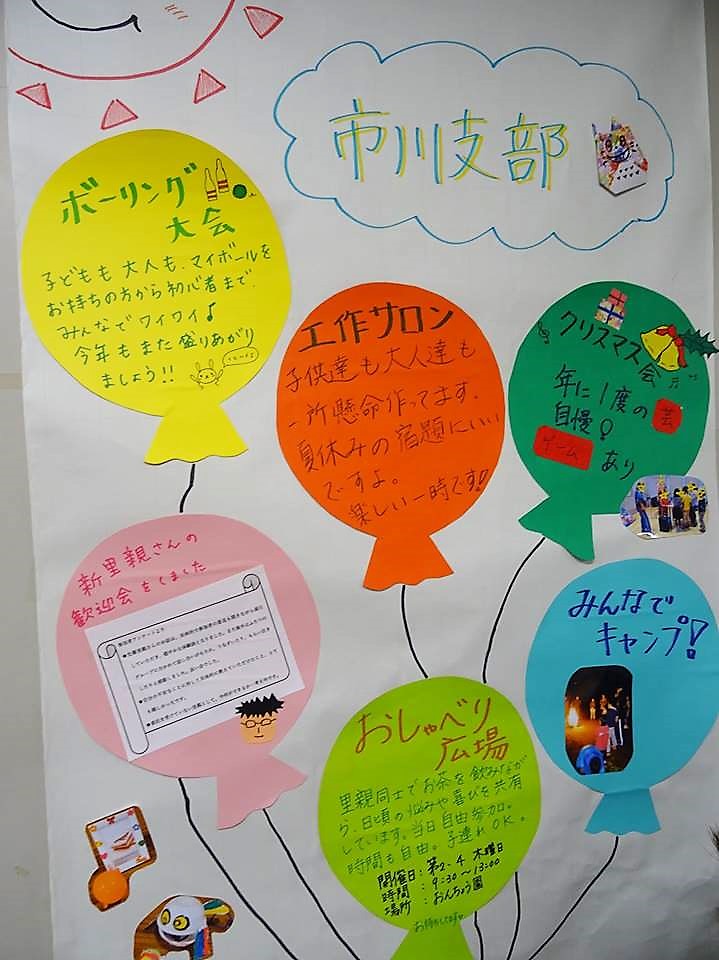 市川支部
ボーリング
大会
子どもも大人も、マイボールを
お持ちの方から初心者まで、
みんなでワイワイ♪
今年もまた盛りあがり
ましょう!!
工作サロン
子供達も大人達も
一所懸命作ってます.
夏休みの宿題にいい
ですよ。
楽しい一時です!!
クリスマス
会
年に1度の芸
自慢!
ゲームあり
新里親さんの
歓迎会をしました
みんなで
キャンプ!
おしゃべり
広場
里親同士でお茶を飲みなが
ら、日頃の悩みや喜びを共有
しています。当日自由参加。
時間も自由。子連れOK。
開催日:第2・4 木曜日
時間:9:30~13:00
場所:おんちょう園
お待ちしてます